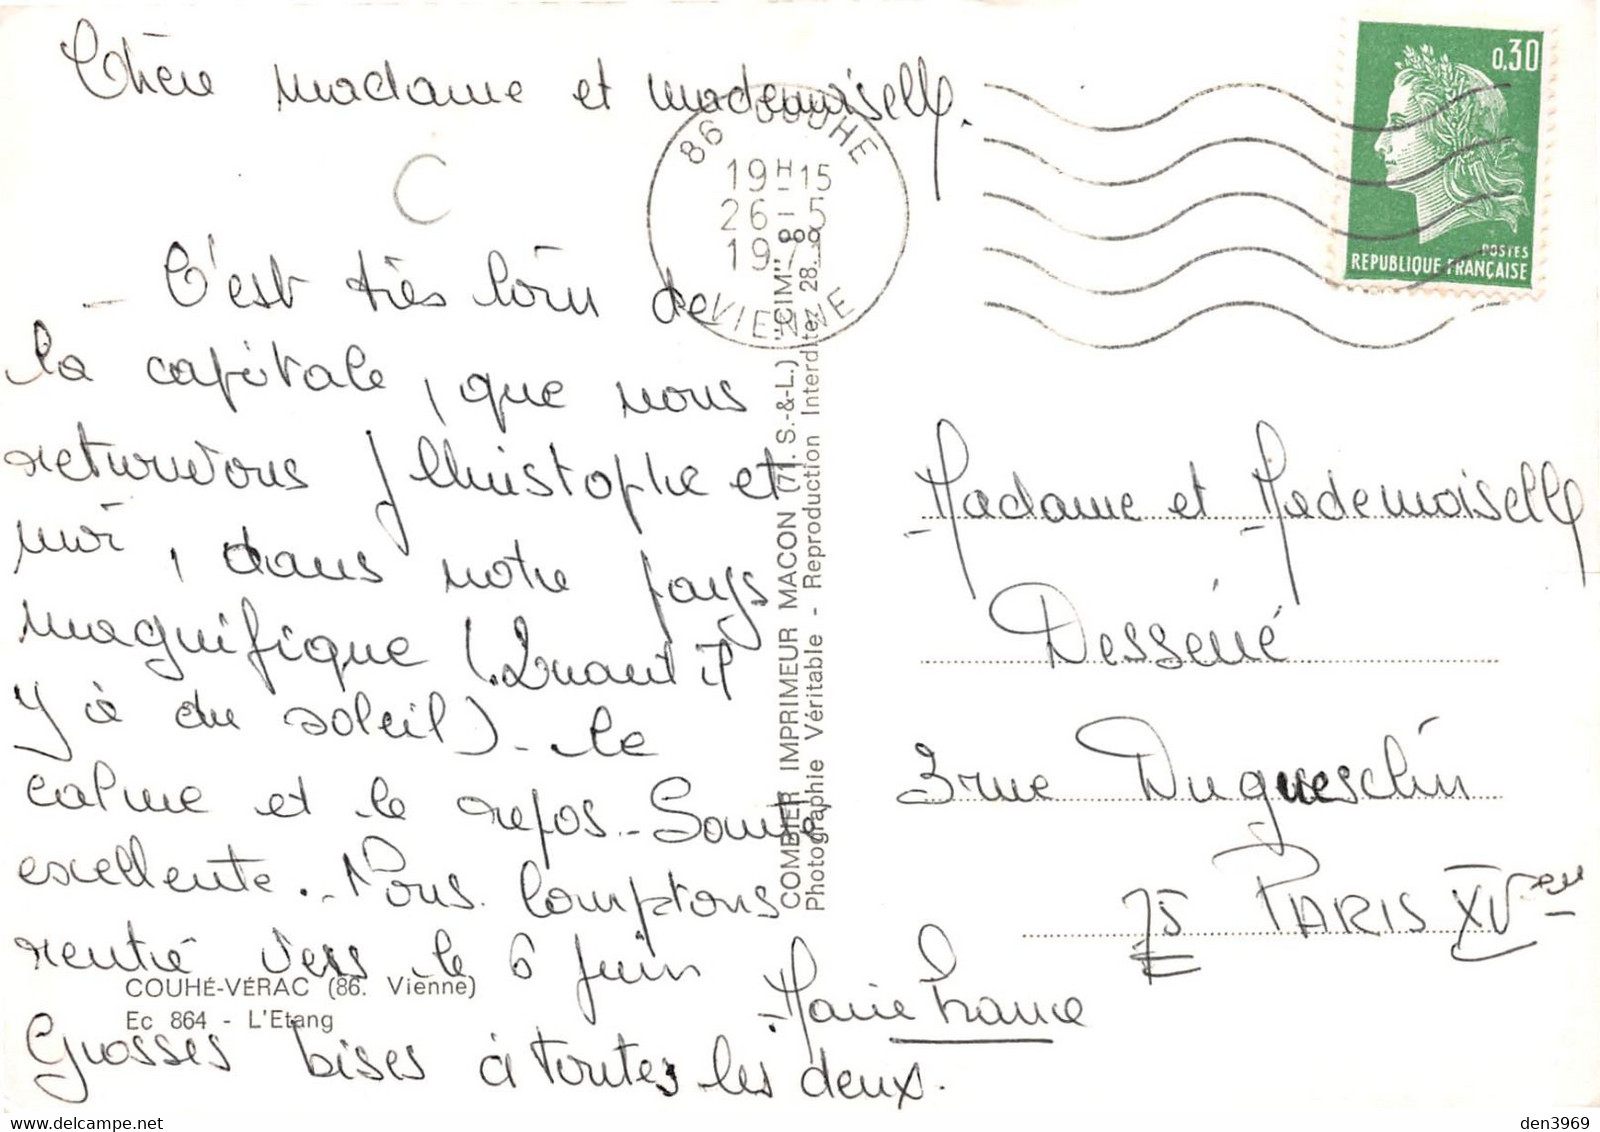 Chère madame et mademoiselle.
C
- C'est très loin de
la capitale, que nous
retrouvons Christophe et
moi, dans notre pays
magnifique (Quant il
y à du soleil) - le
calme et le repos - Santé
excellente. - Nous Comptons
rentré vers le 6 juin
Grosses bises à toutes les deux.
Marie France
COUHÉ-VÉRAC (86. Vienne)
Ec 864 - L'Etang
86 COUHE
19H15
26 - 5
VIENNE
COMBIER IMPRIMEUR MACON (71. S.-&-L.) "CIM"
Photographie Véritable - Reproduction Interdite
0,30
POSTES
REPUBLIQUE FRANÇAISE
Madame et Mademoiselle
Desséné
3 rue Duguesclin
75 PARIS XVeme
den3969